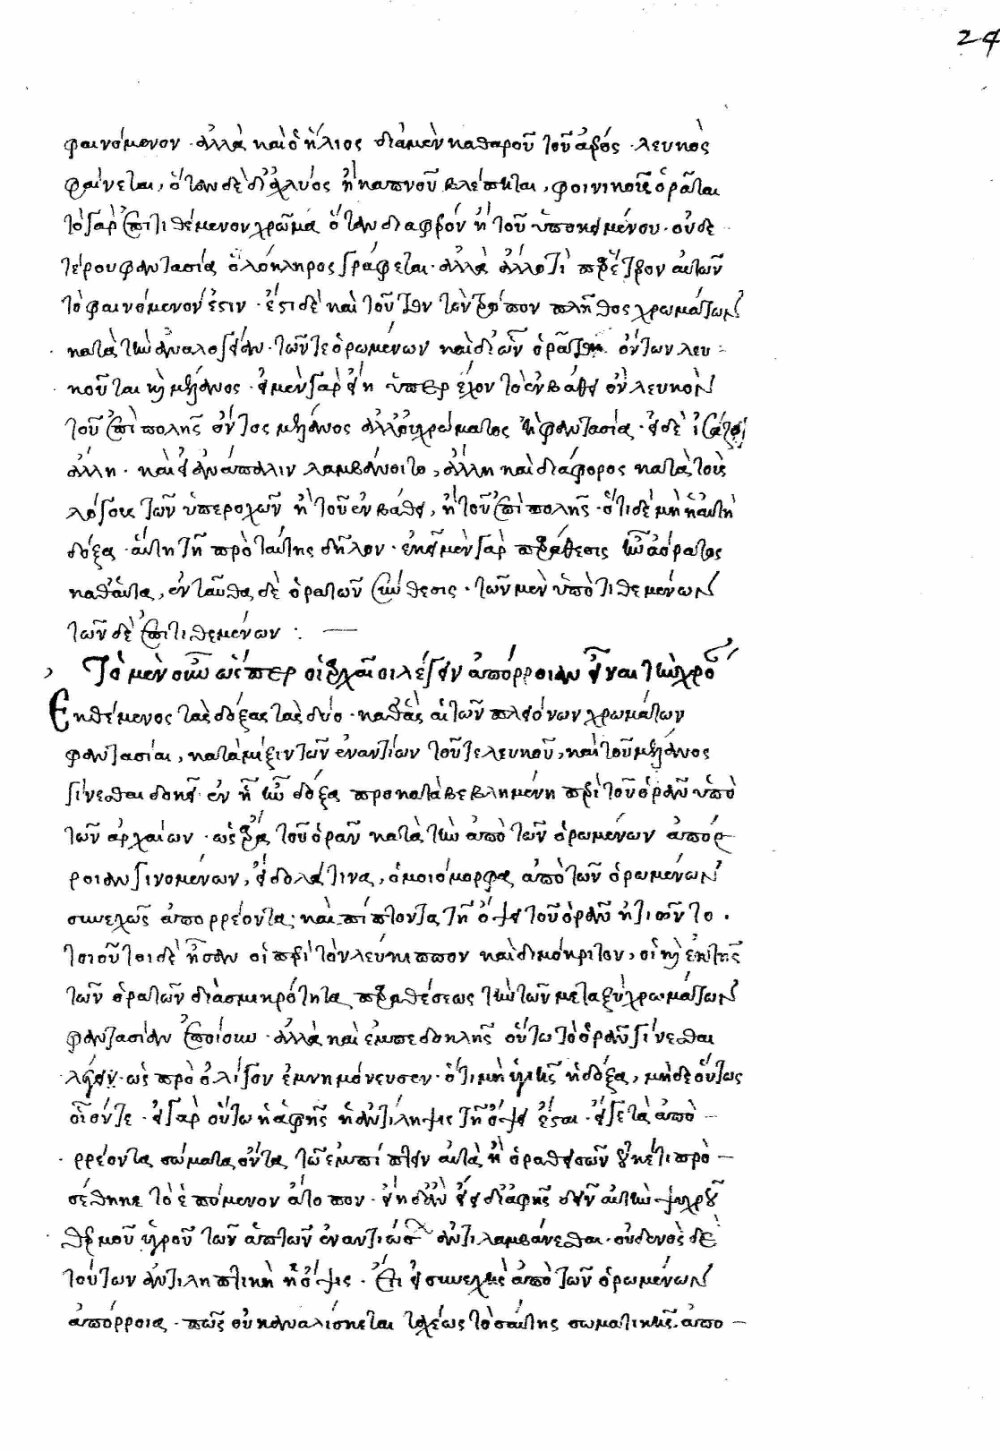 24
φαινόμενον· ἀλλὰ καὶ ὁ ἥλιος διὰ μὲν καθαροῦ τοῦ ἀέρος· λευκὸς
φαίνεται, ὅταν δὲ δι' ἀχλύος ἢ καπνοῦ βλέπηται, φοινικοῦς ὁρᾶται
τὸ γὰρ ἐπιτιθέμενον χρῶμα ὅταν διαφέρον ἢ τοῦ ὑποκειμένου· οὐδε
τέρου φαντασία ὁλόκληρος γράφεται· ἀλλὰ ἄλλο τὶ παρ' ἕτερον αὐτῶν
τὸ φαινόμενόν ἐστιν· ἔστι δὲ καὶ τοῦτον τὸν τρόπον πλῆθος χρωμάτων
κατὰ τὴν ἀναλογίαν· τῶν τε ὁρωμένων καὶ δι' ὧν ὁρᾶται ὄντων λευ
κοῦ τε καὶ μέλανος· εἰ μὲν γὰρ εἴη ὑπερέχον τὸ ἐν βάθει ὂν λευκὸν
τοῦ ἐπιπολῆς ὄντος μέλανος ἄλλου χρώματος ἡ φαντασία· εἰ δὲ ἰσάζοι
ἄλλη· καὶ εἰ ἀνάπαλιν λαμβάνοιτο, ἄλλη καὶ διάφορος κατὰ τοὺς
λόγους τῶν ὑπεροχῶν ἢ τοῦ ἐν βάθει, ἢ τοῦ ἐπιπολῆς· ὅτι δὲ μὴ ἡ αὐτὴ
δόξα· αὕτη τῇ πρὸ ταύτης δῆλον· ἐκεῖ μὲν γὰρ παράθεσις ἦν ἀόρατος
καθ' αὑτά, ἐνταῦθα δὲ ὁρατῶν σύνθεσις· τῶν μὲν ὑποτιθεμένων
τῶν δὲ ἐπιτιθεμένων :
Τὸ μὲν οὖν ὥσπερ οἱ ἀρχαῖοι λέγειν ἀπόρροιαν εἶναι τὴν χρό
Ἐκθέμενος τὰς δόξας τὰς δύο· καθ' ἃς αἱ τῶν πλειόνων χρωμάτων
φαντασίαι, κατὰ μίξιν τῶν ἐναντίων τοῦ τε λευκοῦ, καὶ τοῦ μέλανος
γίνεσθαι δοκεῖ· ἐν ᾗ ἦν δόξα προκαταβεβλημένη περὶ τοῦ ὁρᾶν ὑπὸ
τῶν ἀρχαίων· ὡς ἄρα τοῦ ὁρᾶν κατὰ τὴν ἀπὸ τῶν ὁρωμένων ἀπόρ
ροιαν γινομένων, εἴδωλά τινα, ὁμοιόμορφα ἀπὸ τῶν ὁρωμένων
συνεχῶς ἀπορρέοντα· καὶ πίπτοντα τῇ ὄψει τοῦ ὁρᾶν ᾐτιῶντο·
τοιοῦτοι δὲ ἦσαν οἱ περὶ τὸν λεύκιππον καὶ δημόκριτον, οἳ καὶ ἐκ τῆς
τῶν ὁράτων διὰ σμικρότητα παραθέσεως τὴν τῶν μεταξὺ χρωμάτων
φαντασίαν ἐποίουν· ἀλλὰ καὶ ἐμπεδοκλῆς οὕτω τὸ ὁρᾶν γίνεσθαι
λέγει· ὡς πρὸ ὀλίγον ἐμνημόνευσεν· ὅτι μὴ ὑγιὴς ἡ δόξα, μηδὲ οὕτως
οἷόν τε· εἰ γὰρ οὕτω ἡ ἁφῆς ἡ ἀντίληψις τῇ ὄψει ἔσται· εἴ γε τὰ ἀπο
ρρέοντα σώματα ὄντα τῷ ἐμπίπτειν αὐτὰ ἢ ὁραθήσων οὐκέτι προ
σέθηκε τὸ ἑπόμενον ἄτοπον· εἰ δ' ἂν εἰ δι' ἁφῆς δεῖν αὐτὴν ψυχροῦ
θερμοῦ ξηροῦ τῶν ἁπτῶν ἐναντιώσ ἀντιλαμβάνεσθαι· οὐδενὸς δὲ
τούτων ἀντιληπτικὴ ἡ ὄψις· ἔτι εἰ συνεχὴς ἀπὸ τῶν ὁρωμένων
ἀπόρροια· πῶς οὐκ ἀναλίσκεται ταχέως τὸ σ ταύτης σωματικῆς ἀπο